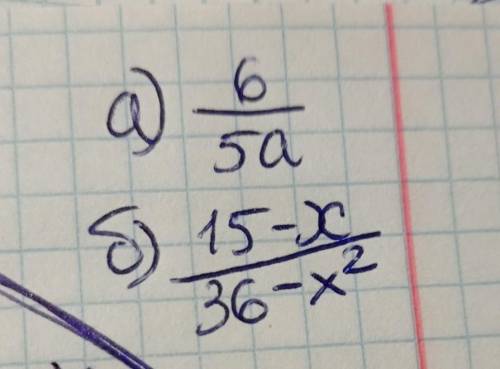 а) 6/5a
б) 15-x/36-x²